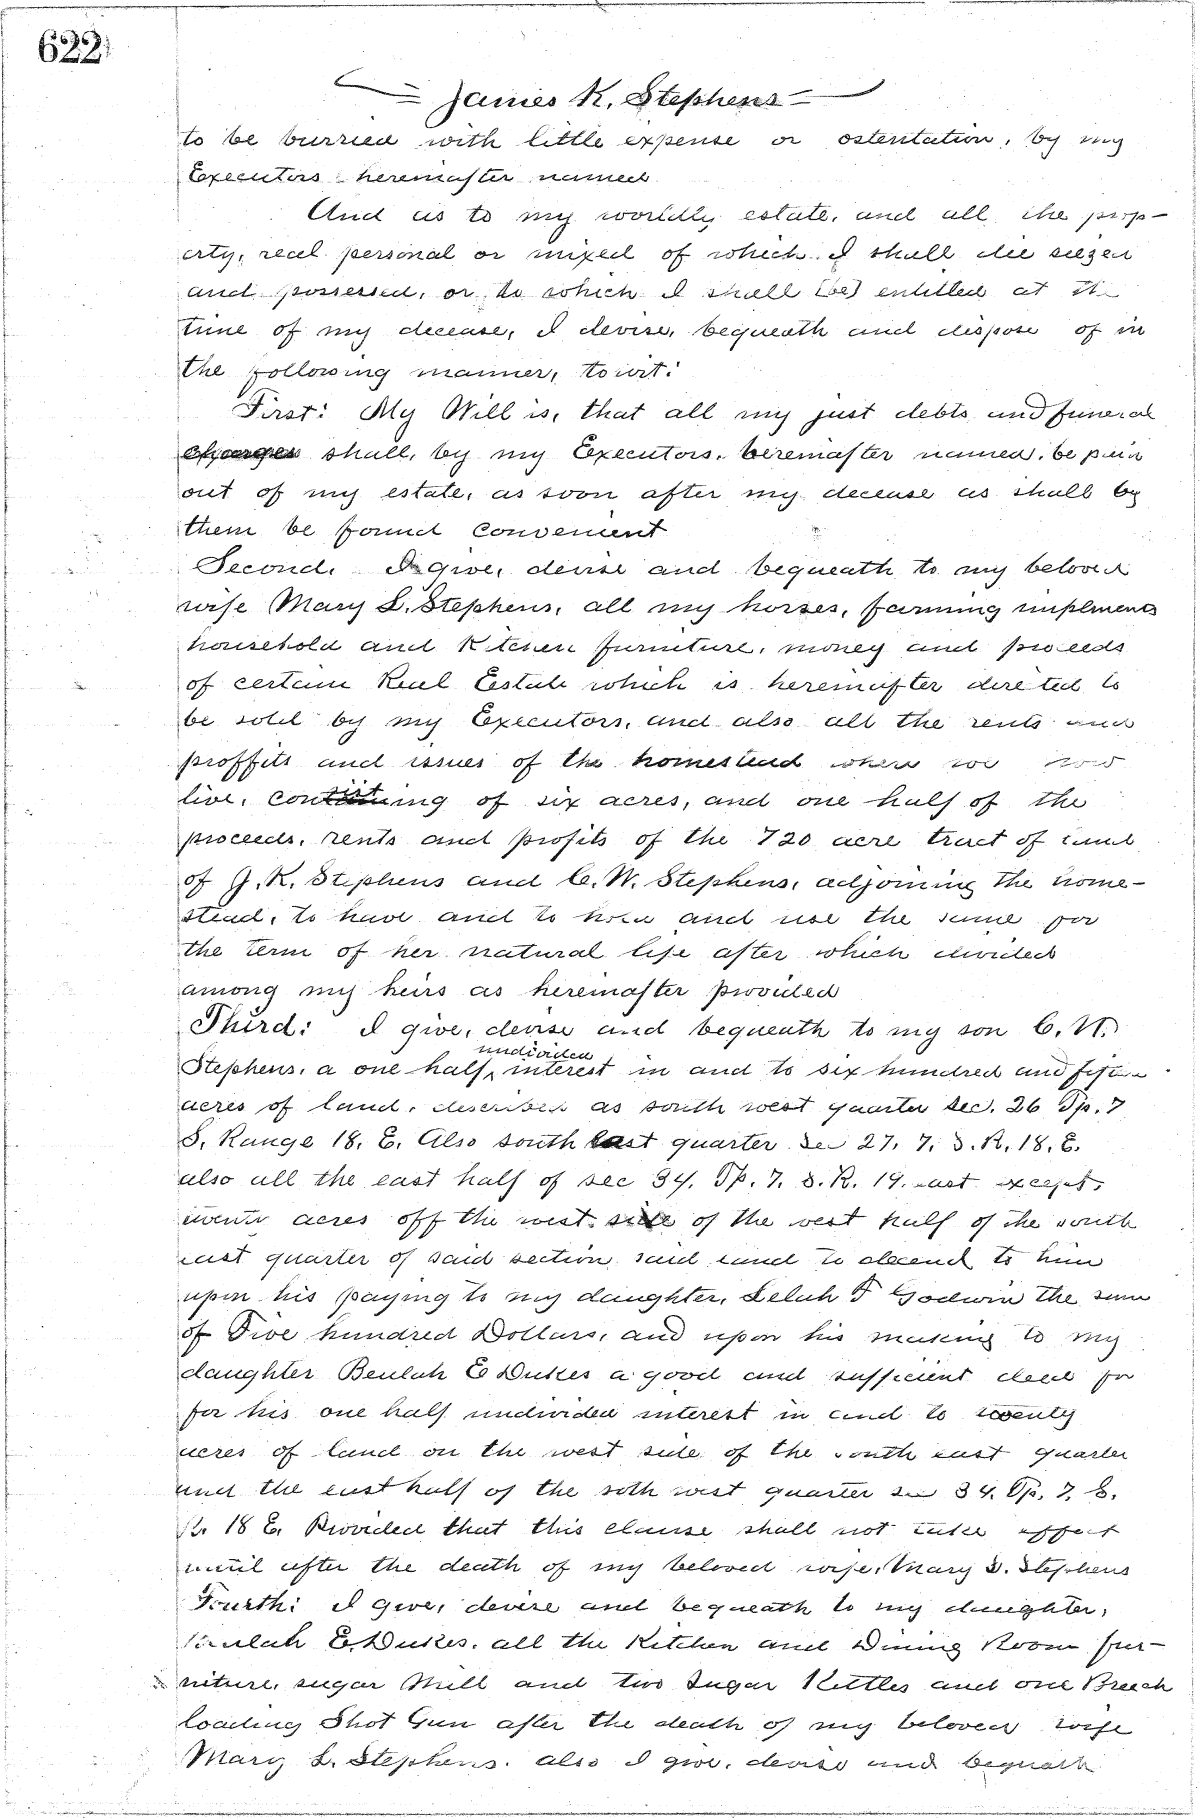 622
James K. Stephens
to be burried with little expense or ostentation, by my
Executors hereinafter named
And as to my worldly estate, and all the prop-
erty, real personal or mixed of which I shall die siezed
and possessed, or to which I shall (be) entitled at the
time of my decease, I devise, bequeath and dispose of in
the following manner, towit:
First: My Will is, that all my just debts and funeral
charges shall, by my Executors, hereinafter named, be paid
out of my estate, as soon after my decease as shall by
them be found convenient
Second. I give, devise and bequeath to my beloved
wife Mary L. Stephens, all my horses, farming implments
household and Kitchen furniture, money and proceeds
of certain Real Estate which is hereinafter directed to
be sold by my Executors, and also all the rents and
proffits and issues of the homestead where we now
live, consisting of six acres, and one half of the
proceeds, rents and profits of the 720 acre tract of land
of J. K. Stephens and C. W. Stephens, adjoining the home-
stead, to have and to hold and use the same for
the term of her natural life after which divided
among my heirs as hereinafter provided
Third: I give, devise and bequeath to my son C. W.
undivided
Stephens, a one half interest in and to six hundred and fifteen
acres of land, described as south west quarter sec. 26 Tp. 7
S. Range 18. E. Also south east quarter Sec 27. 7. S. R. 18. E.
also all the east half of sec 34. Tp. 7. S. R. 19. east except,
twenty acres off the west side of the west half of the south
east quarter of said section said land to decend to him
upon his paying to my daughter, Lelah F Godwin the sum
of Five hundred Dollars, and upon his making to my
daughter Beulah E Dukes a good and sufficient deed for
for his one half undivided interest in and to twenty
acres of land on the west side of the south east quarter
and the east half of the soth west quarter sec 34. Tp. 7. S.
R. 18 E. Provided that this clause shall not take effect
until after the death of my beloved wife, Mary L. Stephens
Fourth: I give, devise and bequeath to my daughter,
Beulah E Dukes, all the Kitchen and Dining Room fur-
niture, sugar Mill and two Sugar Kettles and one Breech
loading Shot Gun after the death of my beloved wife
Mary L. Stephens. also I give, devise and bequeath